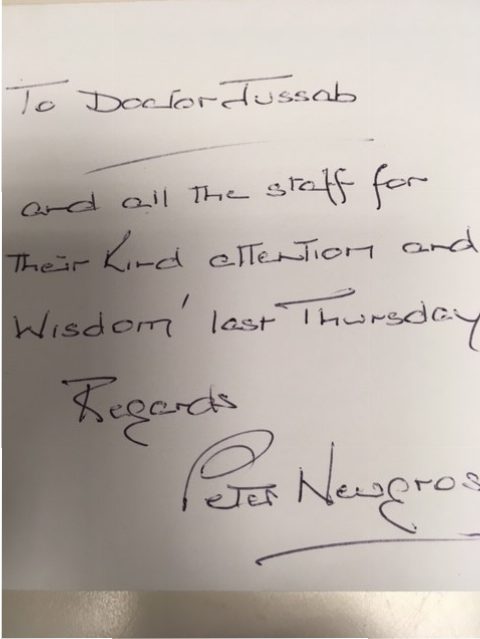 To Doctor Jussab
and all the staff for
their kind attention and
Wisdom' last Thursday
Regards
Peter Newgros